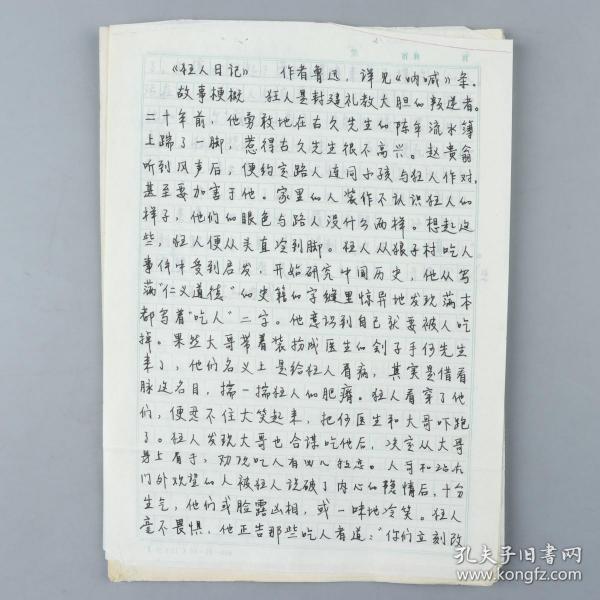 《狂人日记》 作者鲁迅，详见《呐喊》条。
故事梗概 狂人是封建礼教大胆的叛逆者。
二十年前，他勇敢地在古久先生的陈年流水簿
上踹了一脚，惹得古久先生很不高兴。赵贵翁
听到风声后，便约定路人连同小孩与狂人作对，
甚至要加害于他。家里的人装作不认识狂人的
样子，他们的眼色与路人没什么两样。想起这
些，狂人便从头直冷到脚。狂人从狼子村吃人
事件中受到启发，开始研究中国历史，他从写
满"仁义道德"的史籍的字缝里惊异地发现满本
都写着"吃人"二字。他意识到自己就要被人吃
掉。果然大哥带着装扮成医生的刽子手何先生
来了，他们名义上是给狂人看病，其实是借看
脉这名目，揣一揣狂人的肥瘠。狂人看穿了他
们，便忍不住大笑起来，把何医生和大哥吓跑
了。狂人发现大哥也合谋吃他后，决定从大哥
身上着手，劝说吃人者。人哥和站在
门外观望的人被狂人说破了内心的隐情后，十分
生气，他们或脸露凶相，或一味地冷笑。狂人
毫不畏惧，他正告那些吃人者道："你们立刻改
孔夫子旧书网
www.kongfz.com